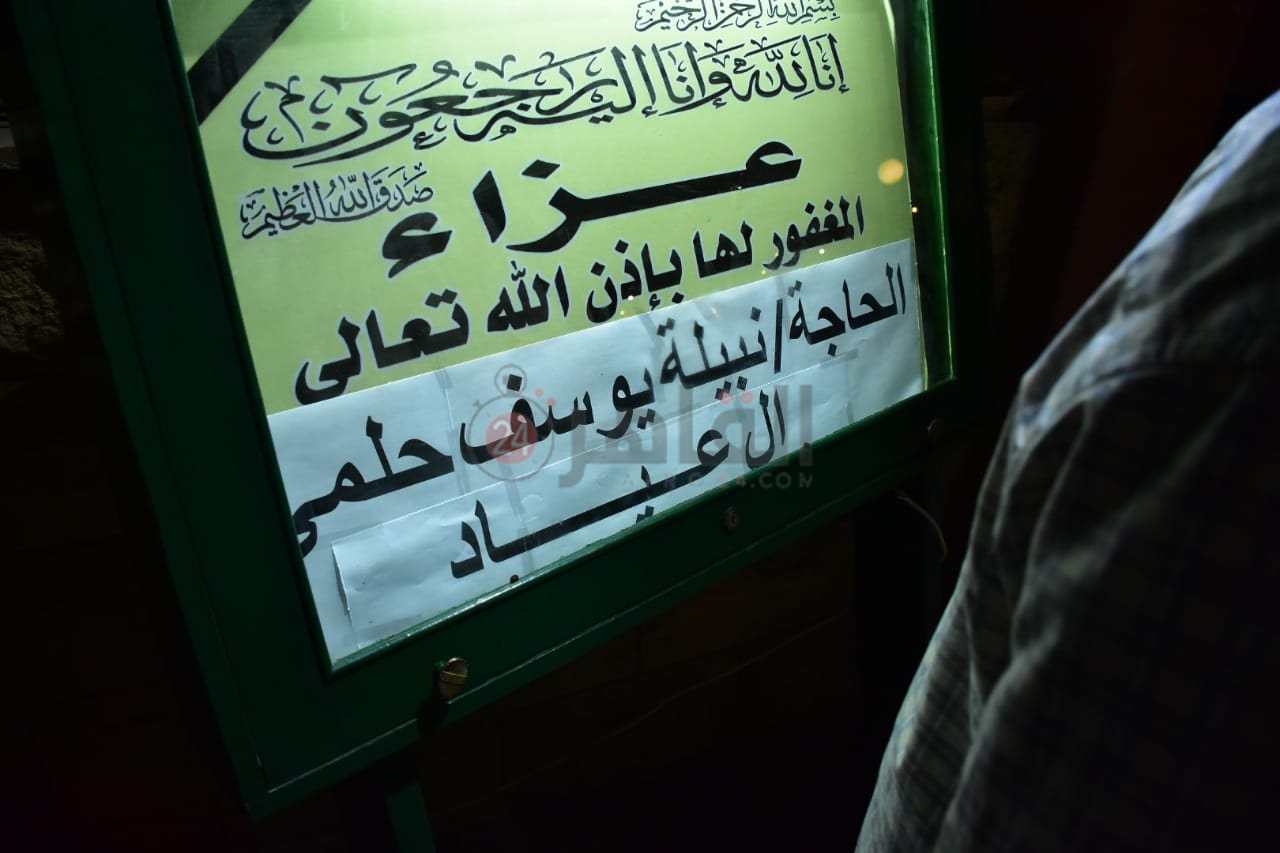 بسم الله الرحمن الرحيم
إنا لله وإنا إليه راجعون
صدق الله العظيم
عزاء
المغفور لها بإذن الله تعالى
الحاجة/نبيلة يوسف حلمى
ال عياد
القاهرة 24
CAIRO24.COM